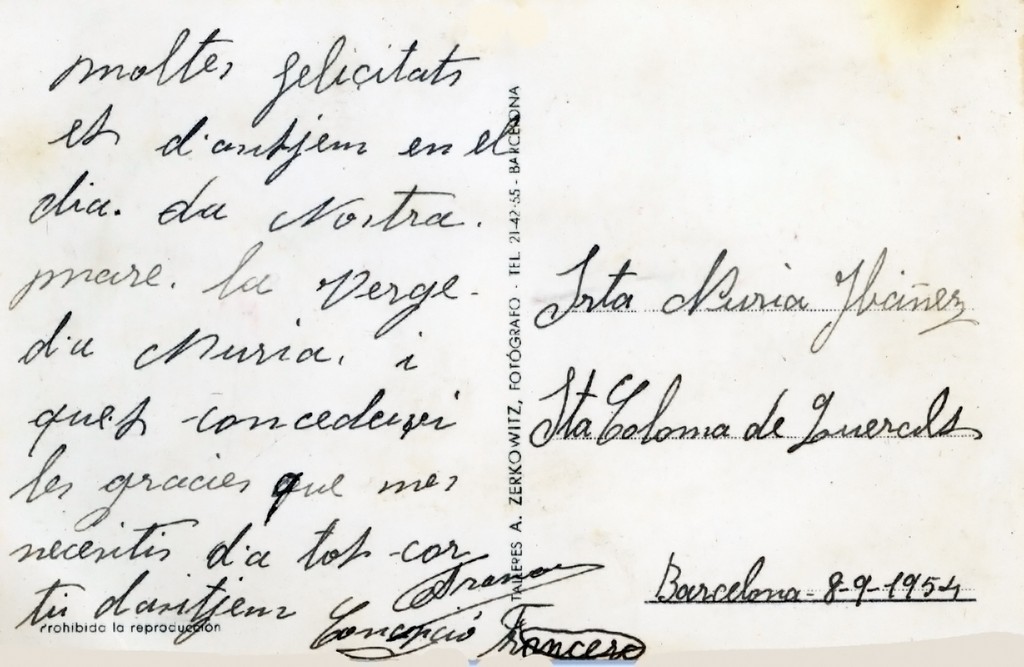 moltes felicitats
et d'asitjem en el
dia. da Nostra.
mare. la Verge.
da Nuria. i
quet concedeixi
les gracies que mes
necesitis d'a tot cor
tu dasitjem
Concepció
Prohibida la reproducción
TALLERES A. ZERKOWITZ, FOTÓGRAFO - TEL. 21-42-55 - BARCELONA
Srta Nuria Ibáñez
Sta Coloma de Queralt
Barcelona - 8-9-1954